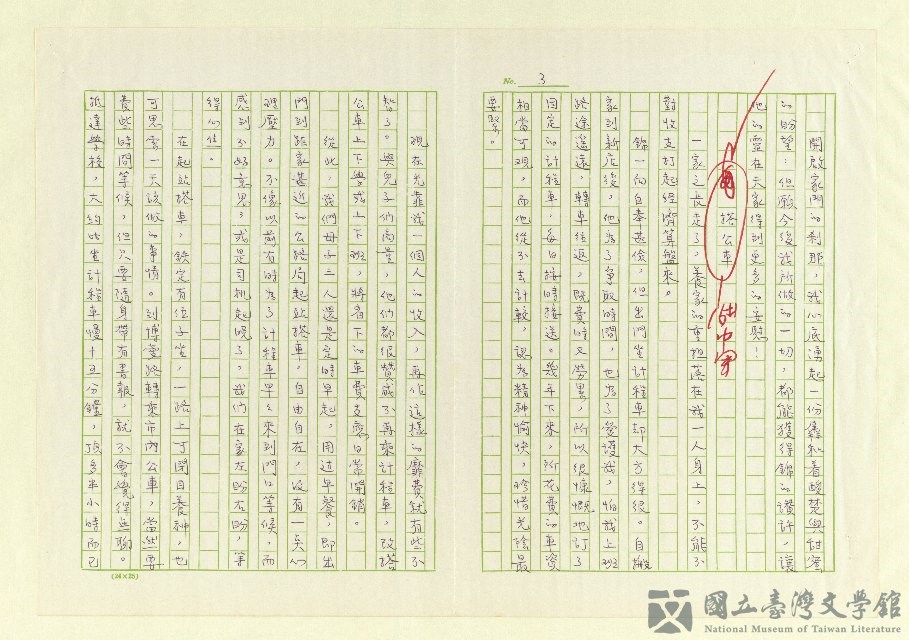 No. 3
開啟家門的剎那,我心底湧起一份鑫和着酸楚與甜蜜
的盼望:但願今後我所做的一切,都能獲得錦的讚許,讓
他的靈在天家得到更多的安慰!
再搭公車
佔中兩
一家之長走了,養家的重担落在我一人身上,不能不
對收支打起經濟算盤來。
錦一向自奉甚儉,但出門坐計程車却大方得很。自搬
家到新店後,他為了爭取時間,也為了愛護我,怕我上班
路途遙遠,轉車往返,既費時又勞累,所以很慷慨地訂了
固定的計程車,每日按時接送。幾年下來,所花費的車資
相當可觀,而他從不去計較,認為精神愉快,珍惜光陰最
要緊。
現在光靠我一個人的收入,再作這樣的靡費就有些不
智了。與兒子們商量,他們都很贊成不再乘計程車,改搭
公車上下學或上下班,將省下的車費支應日常開銷。
從此,我們母子三人還是定時早起,用過早餐,即出
門到距家甚近的公路局起站搭車,自由自在,沒有一矣心
理壓力。不像以前有時為了計程車早早來到門口等候,而
感到不好意思,或是司機起晚了,我們在家左盼右盼,等
得心焦。
在起站搭車,鉄定有位子坐,一路上可閉目養神,也
可思索一天該做的事情。到博愛路轉乘市內公車,當然要
費些時間等候,但只要隨身帶有書報,就不會覺得無聊。
抵達學校,大約比坐計程車慢十五分鐘,頂多半小時而已
(24×25)
國立臺灣文學館
National Museum of Taiwan Literature